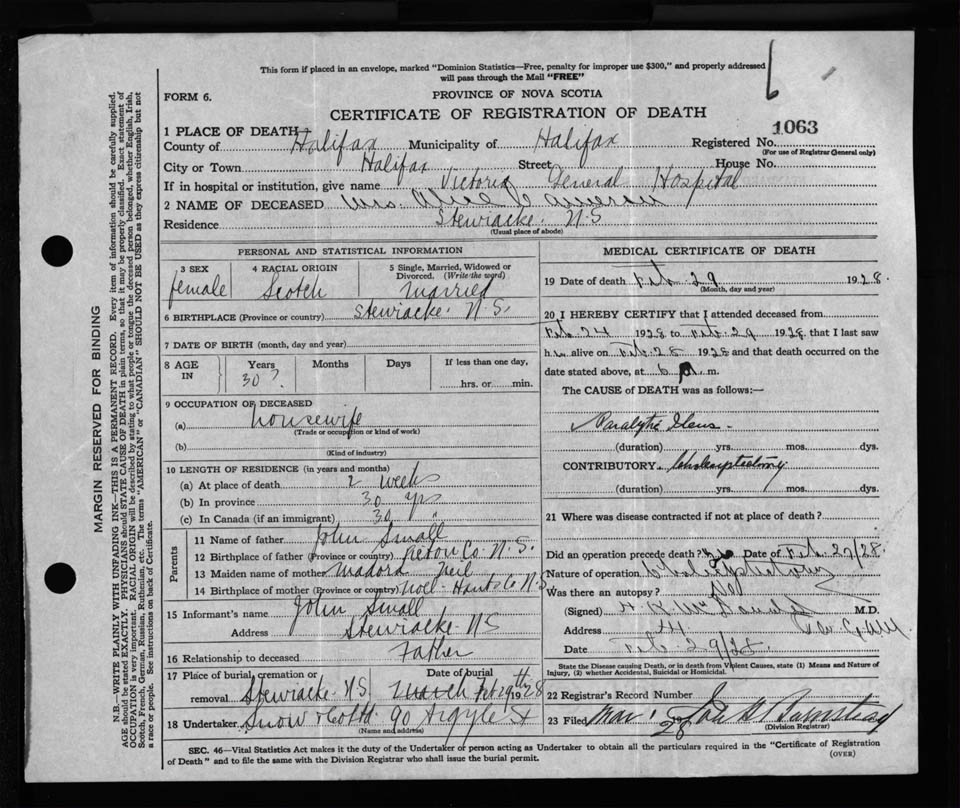 This form if placed in an envelope, marked "Dominion Statistics—Free, penalty for improper use $300," and properly addressed
will pass through the Mail "FREE"
6
FORM 6.
PROVINCE OF NOVA SCOTIA
CERTIFICATE OF REGISTRATION OF DEATH
1 PLACE OF DEATH
County of Halifax Municipality of Halifax Registered No. 1063
(For use of Registrar General only)
City or Town Halifax Street House No.
If in hospital or institution, give name Victoria General Hospital
2 NAME OF DECEASED Mrs. Alice
Residence Stewiacke. N.S
(Usual place of abode)
PERSONAL AND STATISTICAL INFORMATION
3 SEX female
4 RACIAL ORIGIN Scotch
5 Single, Married, Widowed or
Divorced. (Write the word)
Married
6 BIRTHPLACE (Province or country) Stewiacke. N.S.
7 DATE OF BIRTH (month, day and year)
8 AGE IN Years 30? Months Days If less than one day,
hrs. or min.
9 OCCUPATION OF DECEASED
(a) Housewife
(Trade or occupation or kind of work)
(b)
(Kind of industry)
10 LENGTH OF RESIDENCE (in years and months)
(a) At place of death 2 weeks
(b) In province 30 yrs
(c) In Canada (if an immigrant) 30 "
Parents
11 Name of father John Small
12 Birthplace of father (Province or country) Co. N.S.
13 Maiden name of mother Neil
14 Birthplace of mother (Province or country) Noel-Hants Co N.S
15 Informant's name John Small
Address Stewiacke N S
16 Relationship to deceased Father
17 Place of burial, cremation or Date of burial
removal Stewiacke N.S. March Feb 29th 1928
18 Undertaker Snow & Co Ltd 90 Argyle St
(Name and address)
MEDICAL CERTIFICATE OF DEATH
19 Date of death Feb 29 1928.
(Month, day and year)
20 I HEREBY CERTIFY that I attended deceased from
Feb. 24 1928 to Feb. 29 1928, that I last saw
h alive on Feb. 28 1928 and that death occurred on the
date stated above, at 6 m.
The CAUSE of DEATH was as follows:—
Paralytic Ileus.
(duration) yrs. mos. dys.
CONTRIBUTORY
(duration) yrs. mos. dys.
21 Where was disease contracted if not at place of death?
Did an operation precede death? Yes Date of Feb. 27/28.
Nature of operation
Was there an autopsy? No
(Signed) M.D.
Address
Date Feb. 29/28
State the Disease causing Death, or in death from Violent Causes, state (1) Means and Nature of
Injury, (2) whether Accidental, Suicidal or Homicidal.
22 Registrar's Record Number
23 Filed Mar 1 1928
(Division Registrar)
SEC. 46—Vital Statistics Act makes it the duty of the Undertaker or person acting as Undertaker to obtain all the particulars required in the "Certificate of Registration
of Death" and to file the same with the Division Registrar who shall issue the burial permit.
(OVER)
MARGIN RESERVED FOR BINDING
N.B.—WRITE PLAINLY WITH UNFADING INK—THIS IS A PERMANENT RECORD. Every item of information should be carefully supplied.
AGE should be stated EXACTLY. PHYSICIANS should STATE CAUSE OF DEATH in plain terms, so that it may be properly classified. Exact statement of
OCCUPATION is very important. RACIAL ORIGIN will be described by stating to what people or tongue the deceased person belonged, whether English, Irish,
Scotch, French, German, Russian, Ruthenian, etc. The terms "AMERICAN" or "CANADIAN" SHOULD NOT BE USED as they express citizenship but not
a race or people. See instructions on back of Certificate.